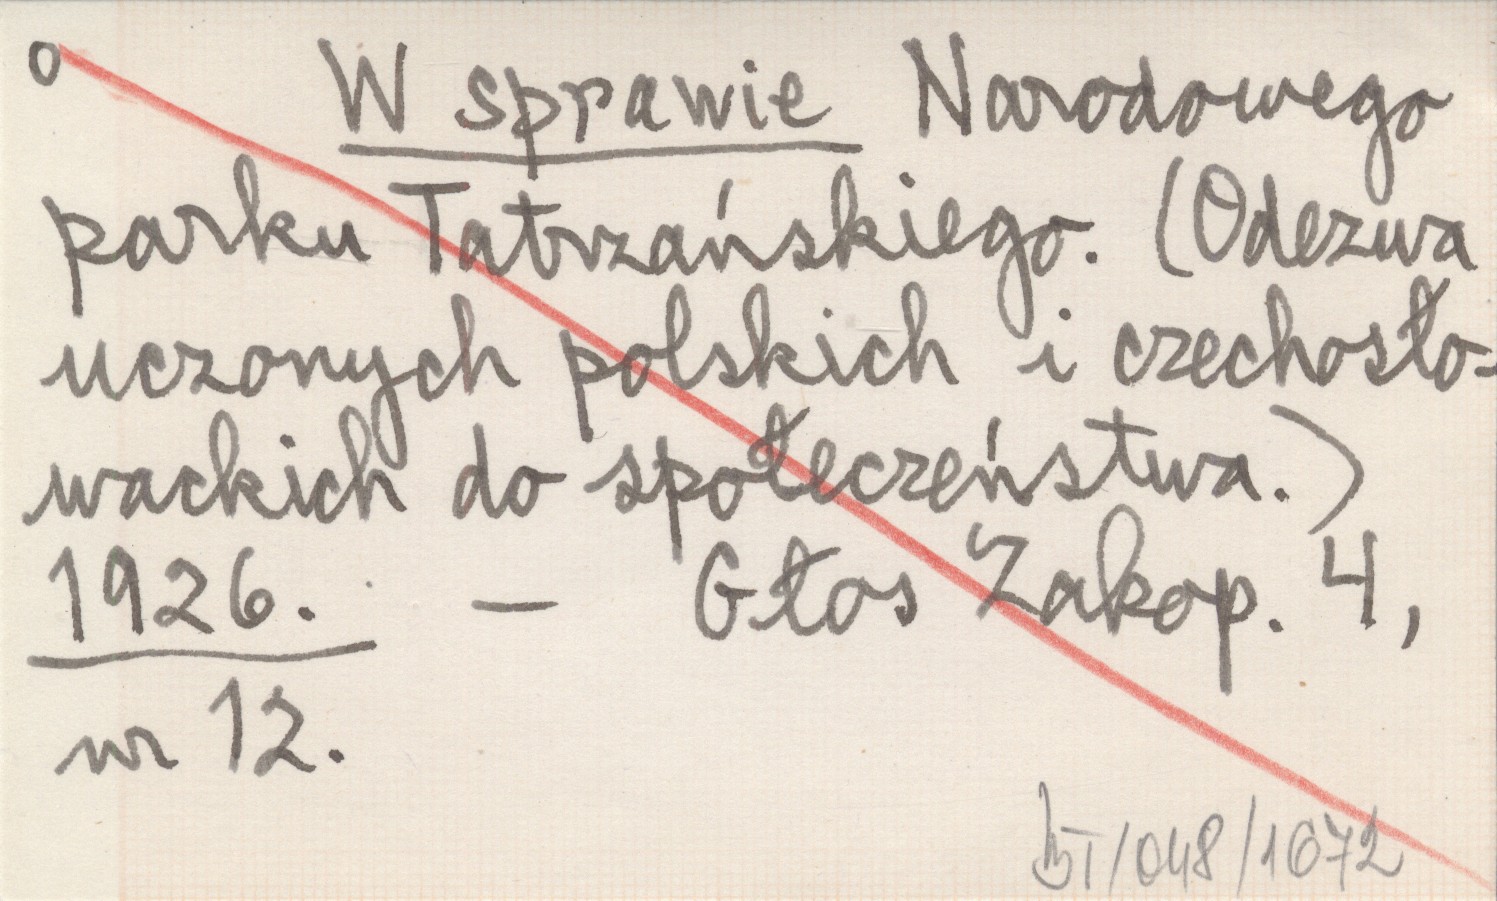 o W sprawie Narodowego
parku Tatrzańskiego. (Odezwa
uczonych polskich i czechosło-
wackich do społeczeństwa.)
1926. — Głos Zakop. 4,
nr 12.
BT/048/1672